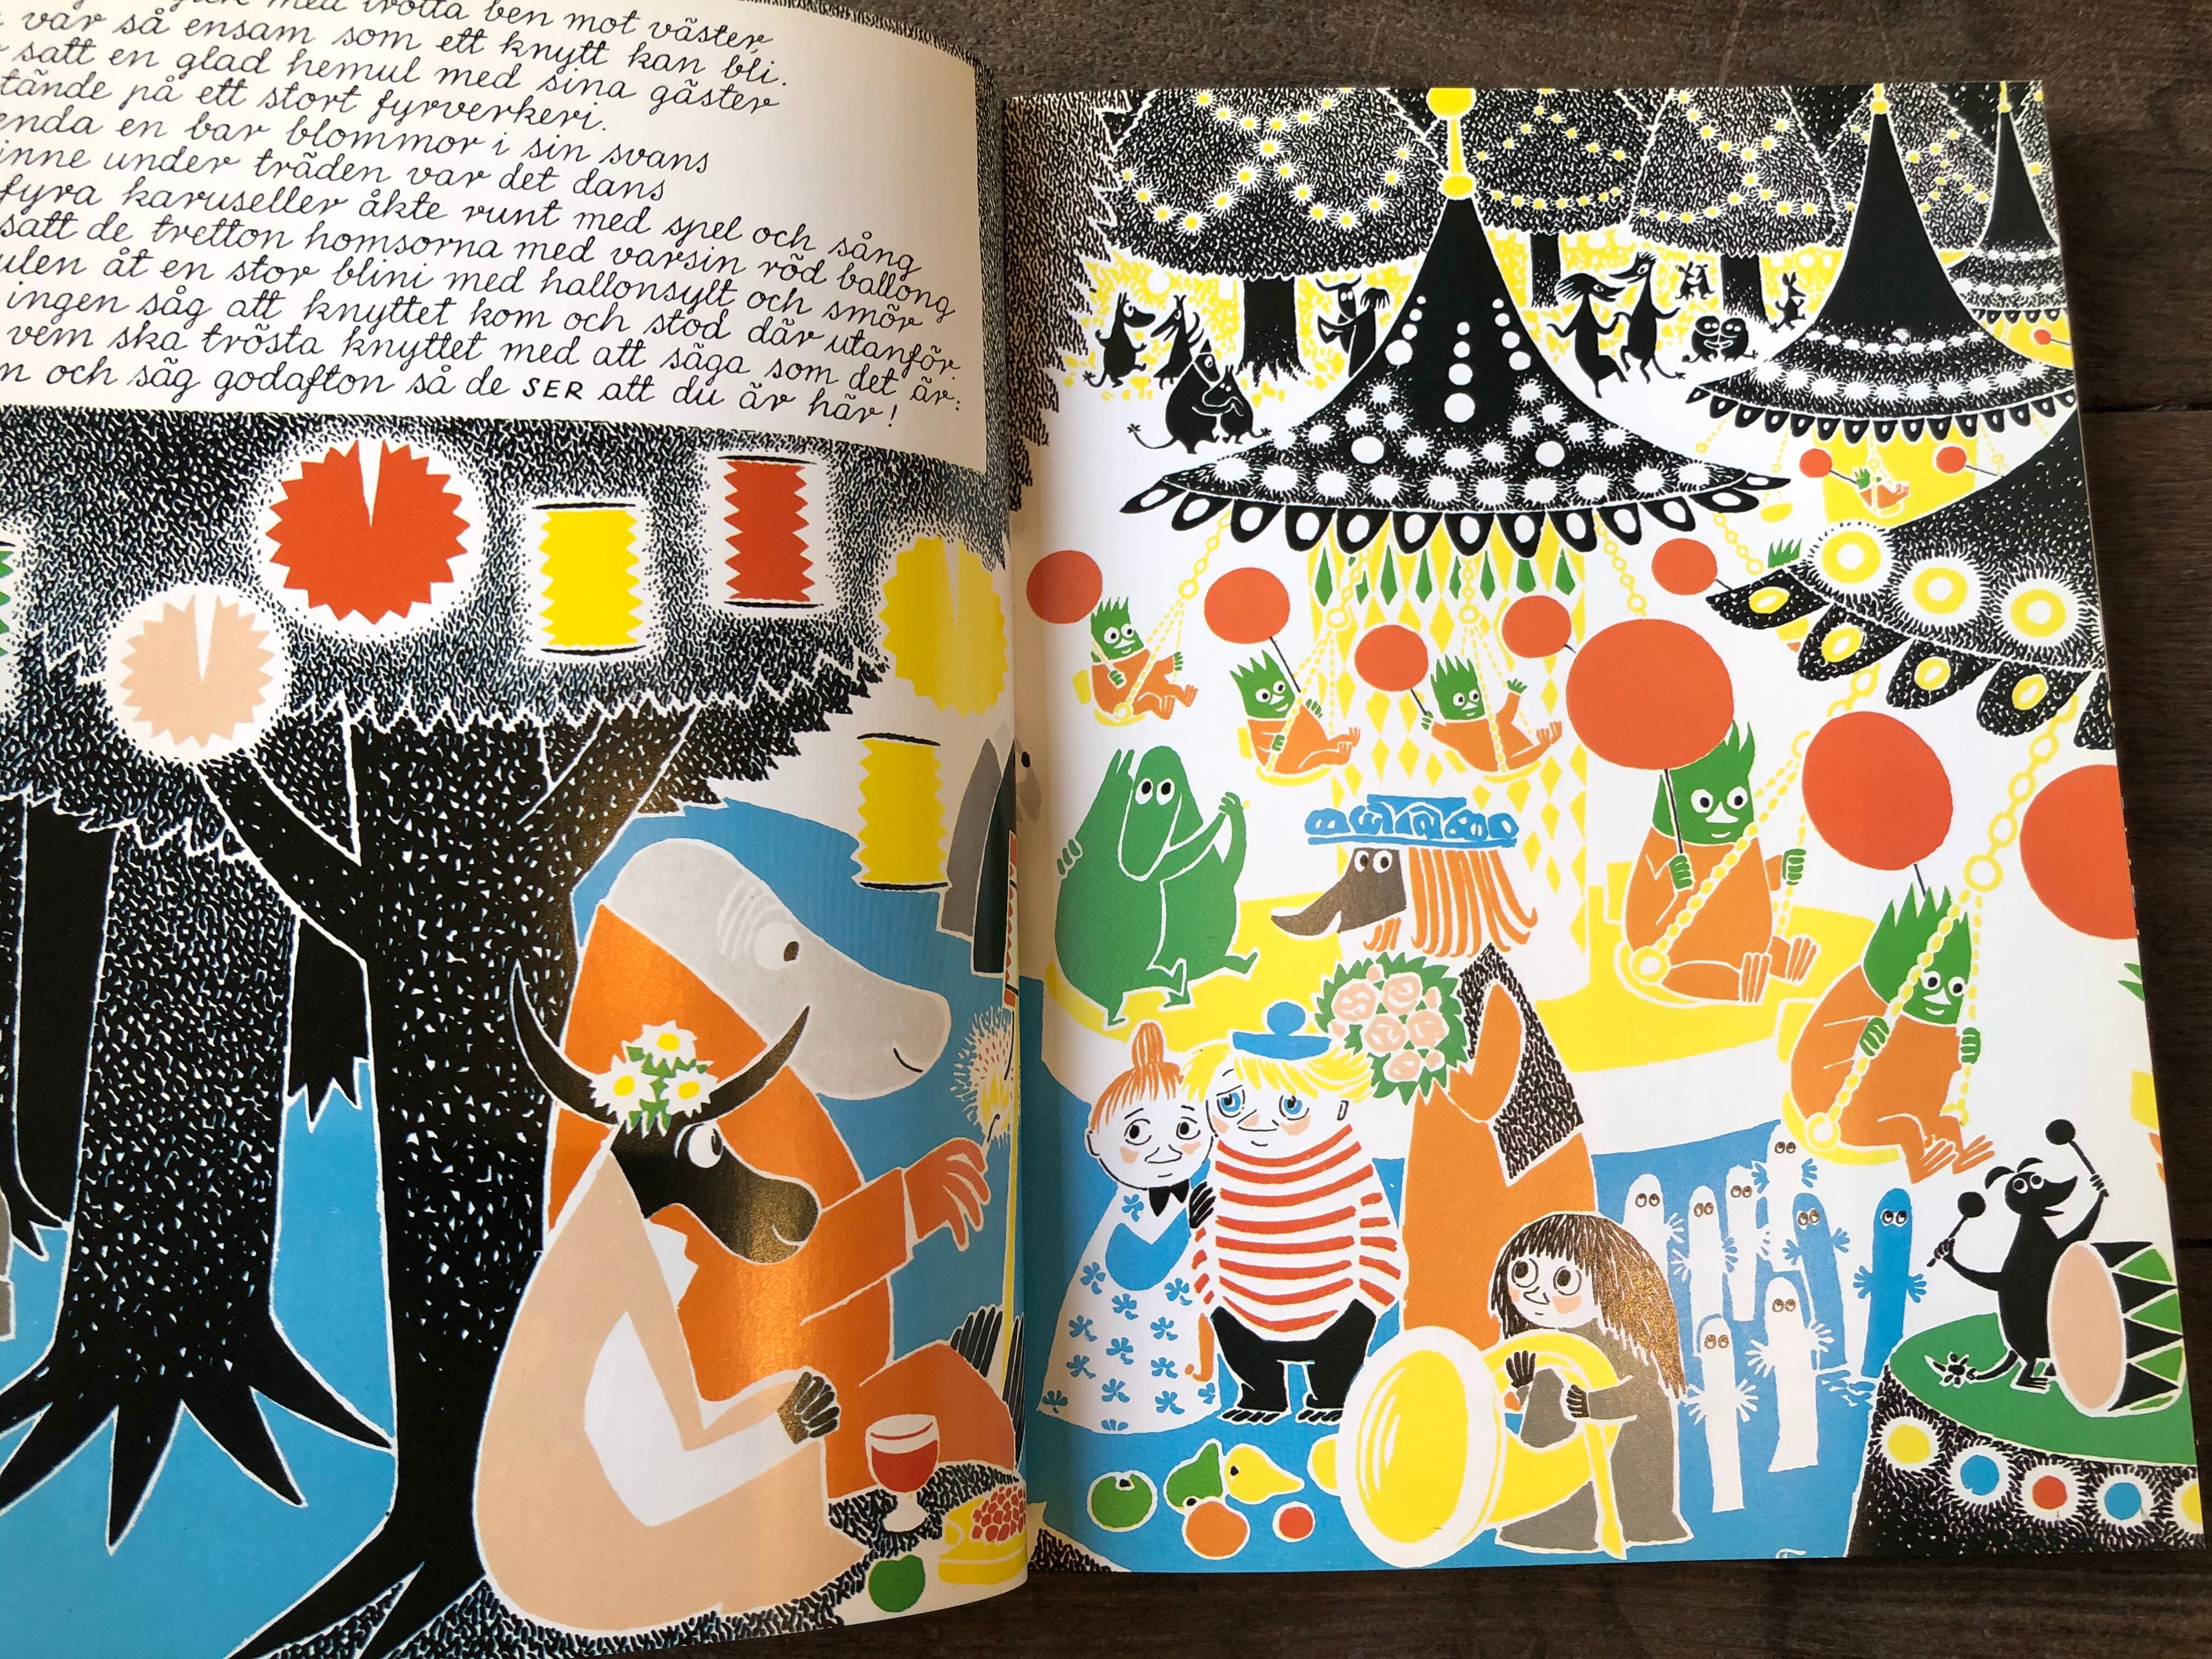 med trötta ben mot väster,
var så ensam som ett knytt kan bli.
satt en glad hemul med sina gäster
tände på ett stort fyrverkeri.
enda en bar blommor i sin svans
inne under träden var det dans
fyra karuseller åkte runt med spel och sång
satt de tretton homsorna med varsin röd ballong
ulen åt en stor blini med hallonsylt och smör
ingen såg att knyttet kom och stod där utanför.
vem ska trösta knyttet med att säga som det är:
och säg godafton så de SER att du är här!